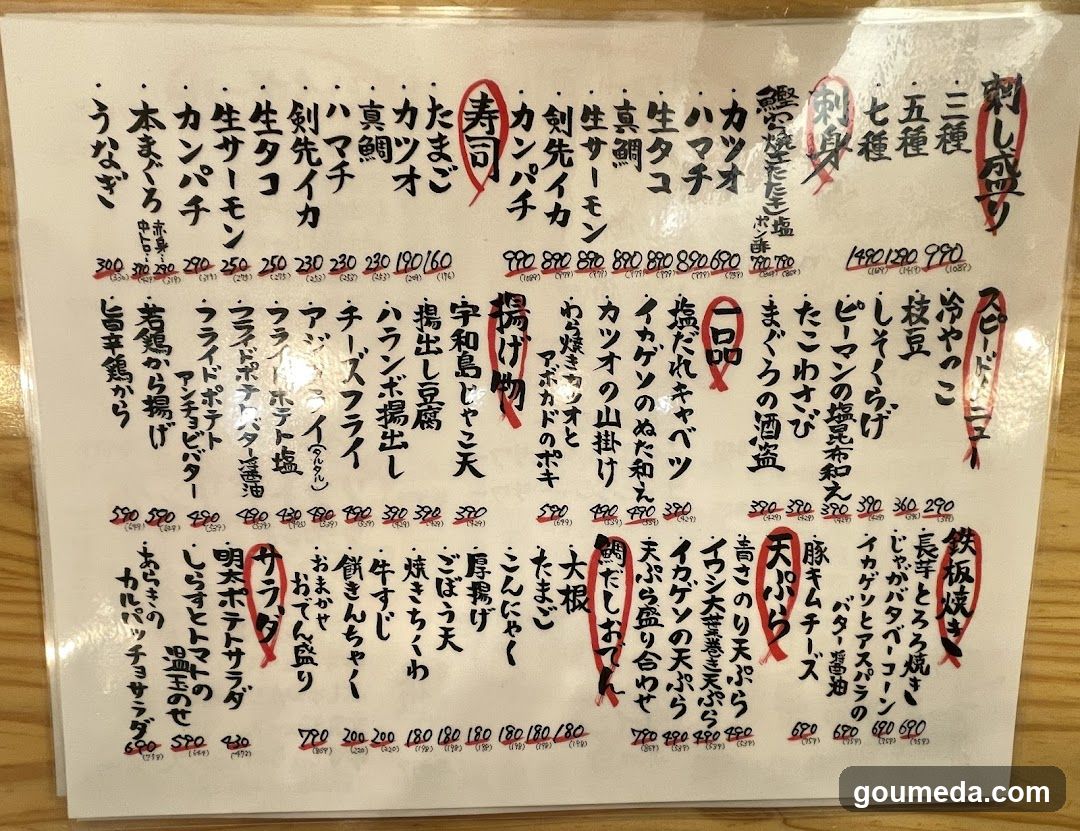 刺し盛り
・三種 990 (1089)
・五種 1290 (1419)
・七種 1490
刺身
鰹わら焼きたたき 塩 790 (869)
ポン酢 790 (869)
・カツオ 690 (759)
・ハマチ 890 (979)
・生タコ 890 (979)
・真鯛 890 (979)
・生サーモン 890 (979)
・剣先イカ 890 (979)
・カンパチ 990 (1089)
寿司
・たまご 160 (176)
・カツオ 190 (209)
・真鯛 230 (253)
・ハマチ 230 (253)
・剣先イカ 230 (253)
・生タコ 250 (275)
・生サーモン 250 (275)
・カンパチ 290 (319)
・本まぐろ 赤身 290 (319)
中トロ 390 (429)
・うなぎ 300 (330)
スピードメニュー
・冷やっこ 290 (319)
・枝豆 360
・しそくらげ 390 (429)
・ピーマンの塩昆布和え 390 (429)
・たこわさび 390 (429)
・まぐろの酒盗 390 (429)
一品
・塩だれキャベツ 390 (429)
・イカゲソのぬた和え 490 (539)
・カツオの山掛け 490 (539)
・わら焼きカツオと
アボカドのポキ 590 (649)
揚げ物
・宇和島じゃこ天 390 (429)
・揚出し豆腐 390 (429)
・ハランボ揚出し 390 (429)
・チーズフライ 490 (539)
・アジフライ(タルタル) 490 (539)
・フライドポテト塩 430
・フライドポテトバター醤油 490 (539)
・フライドポテト
アンチョビバター 490 (539)
・若鶏から揚げ 590 (649)
・旨辛鶏から 590 (649)
鉄板焼き
・長芋とろろ焼き 690 (759)
・じゃがバタベーコーン 690 (759)
・イカゲソとアスパラの
バター醤油 690 (759)
・豚キムチーズ 690 (759)
天ぷら
・青さのり天ぷら 490 (539)
・イワシ大葉巻き天ぷら 490 (539)
・イカゲソの天ぷら 490 (539)
・天ぷら盛り合わせ 790 (869)
鯛だしおでん
・大根 180 (198)
・たまご 180 (198)
・こんにゃく 180 (198)
・厚揚げ 180 (198)
・ごぼう天 180 (198)
・焼きちくわ 180 (198)
・牛すじ 200 (220)
・餅きんちゃく 200 (220)
・おまかせ
おでん盛り 790 (869)
サラダ
・明太ポテトサラダ 430
・しらすとトマトの
温玉のせ 590 (649)
・あらきの
カルパッチョサラダ 690 (759)
goumeda.com